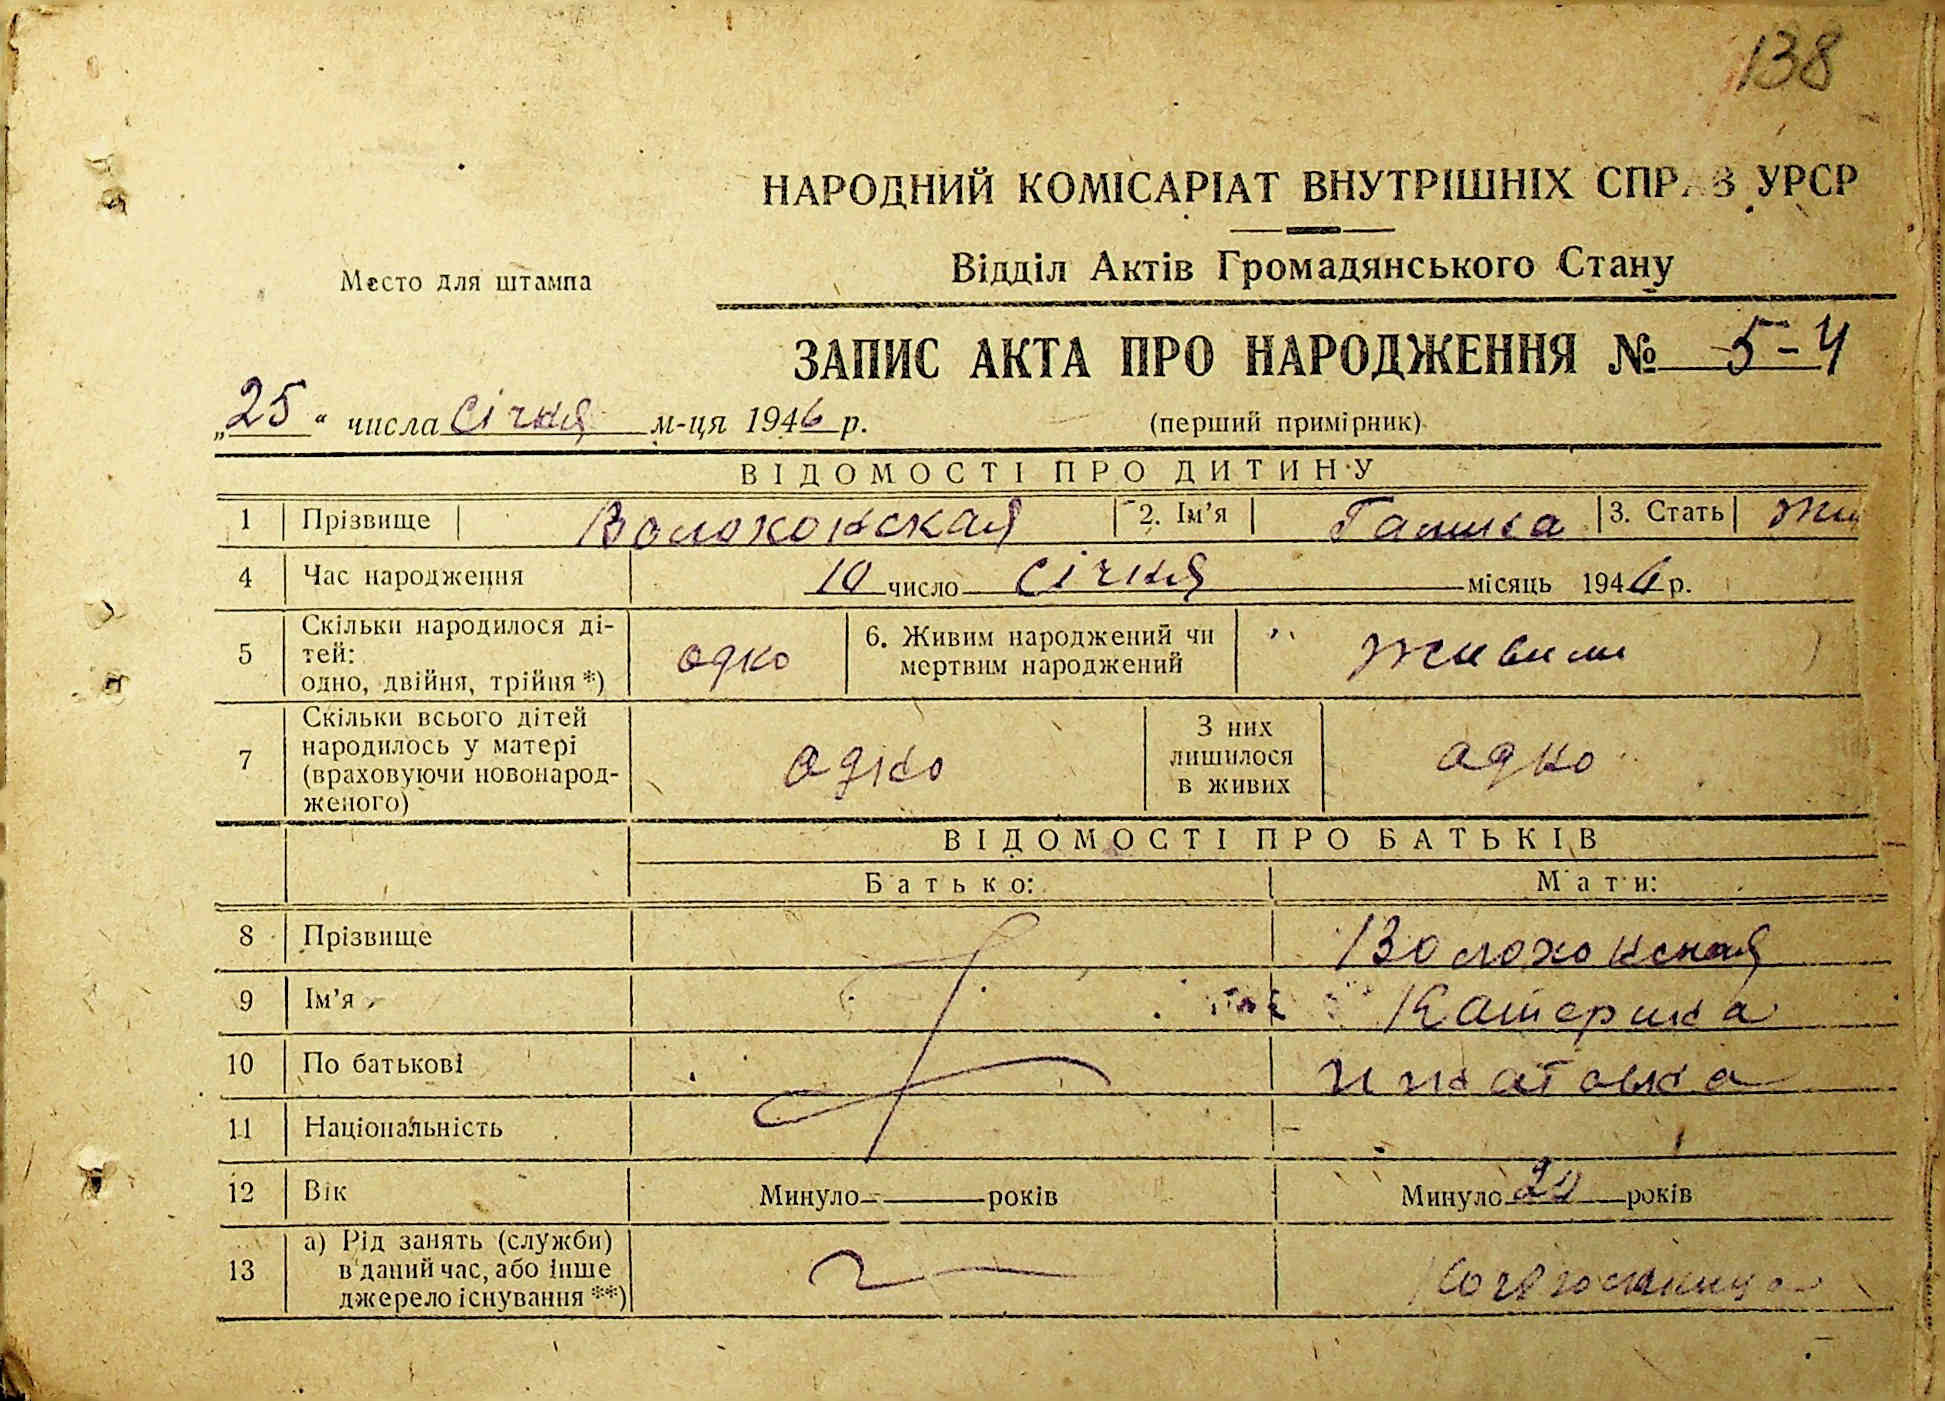 138
НАРОДНИЙ КОМІСАРІАТ ВНУТРІШНІХ СПРАВ УРСР
Відділ Актів Громадянського Стану
Место для штампа
ЗАПИС АКТА ПРО НАРОДЖЕННЯ № 5-4
„25“ числа січня м-ця 1946 р.
(перший примірник)
ВІДОМОСТІ ПРО ДИТИНУ
1 Прізвище Волохонская 2. Ім’я Галина 3. Стать жін
4 Час народження 10 число січня місяць 1946 р.
5 Скільки народилося ді-
тей:
одно, двійня, трійня*) одно 6. Живим народжений чи
мертвим народжений живим
7 Скільки всього дітей
народилось у матері
(враховуючи новонарод-
женого) одно З них
лишилося
в живих одно
ВІДОМОСТІ ПРО БАТЬКІВ
Батько: Мати:
8 Прізвище Волохонская
9 Ім’я Катерина
10 По батькові
11 Національність
12 Вік Минуло — років Минуло 20 років
13 а) Рід занять (служби)
в даний час, або інше
джерело існування **)